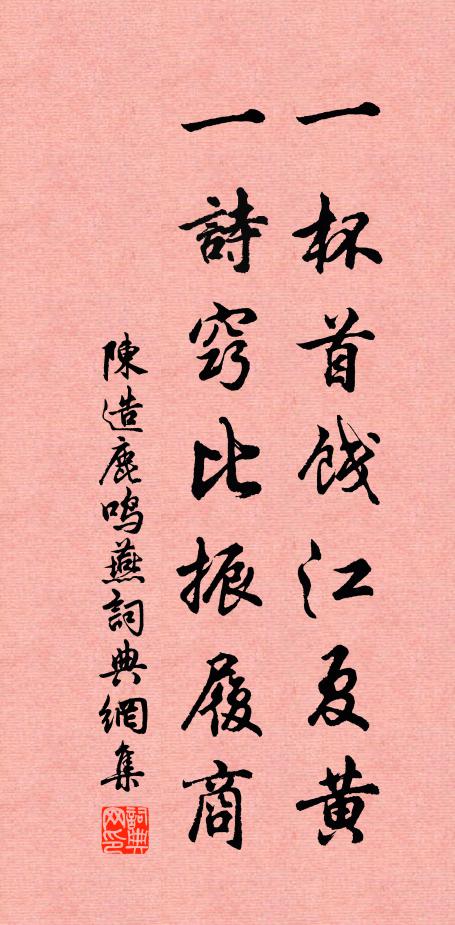 一杯首餞江夏黄
一詩窃比振履商
陳造鹿鸣燕詞典網集
詞典网印